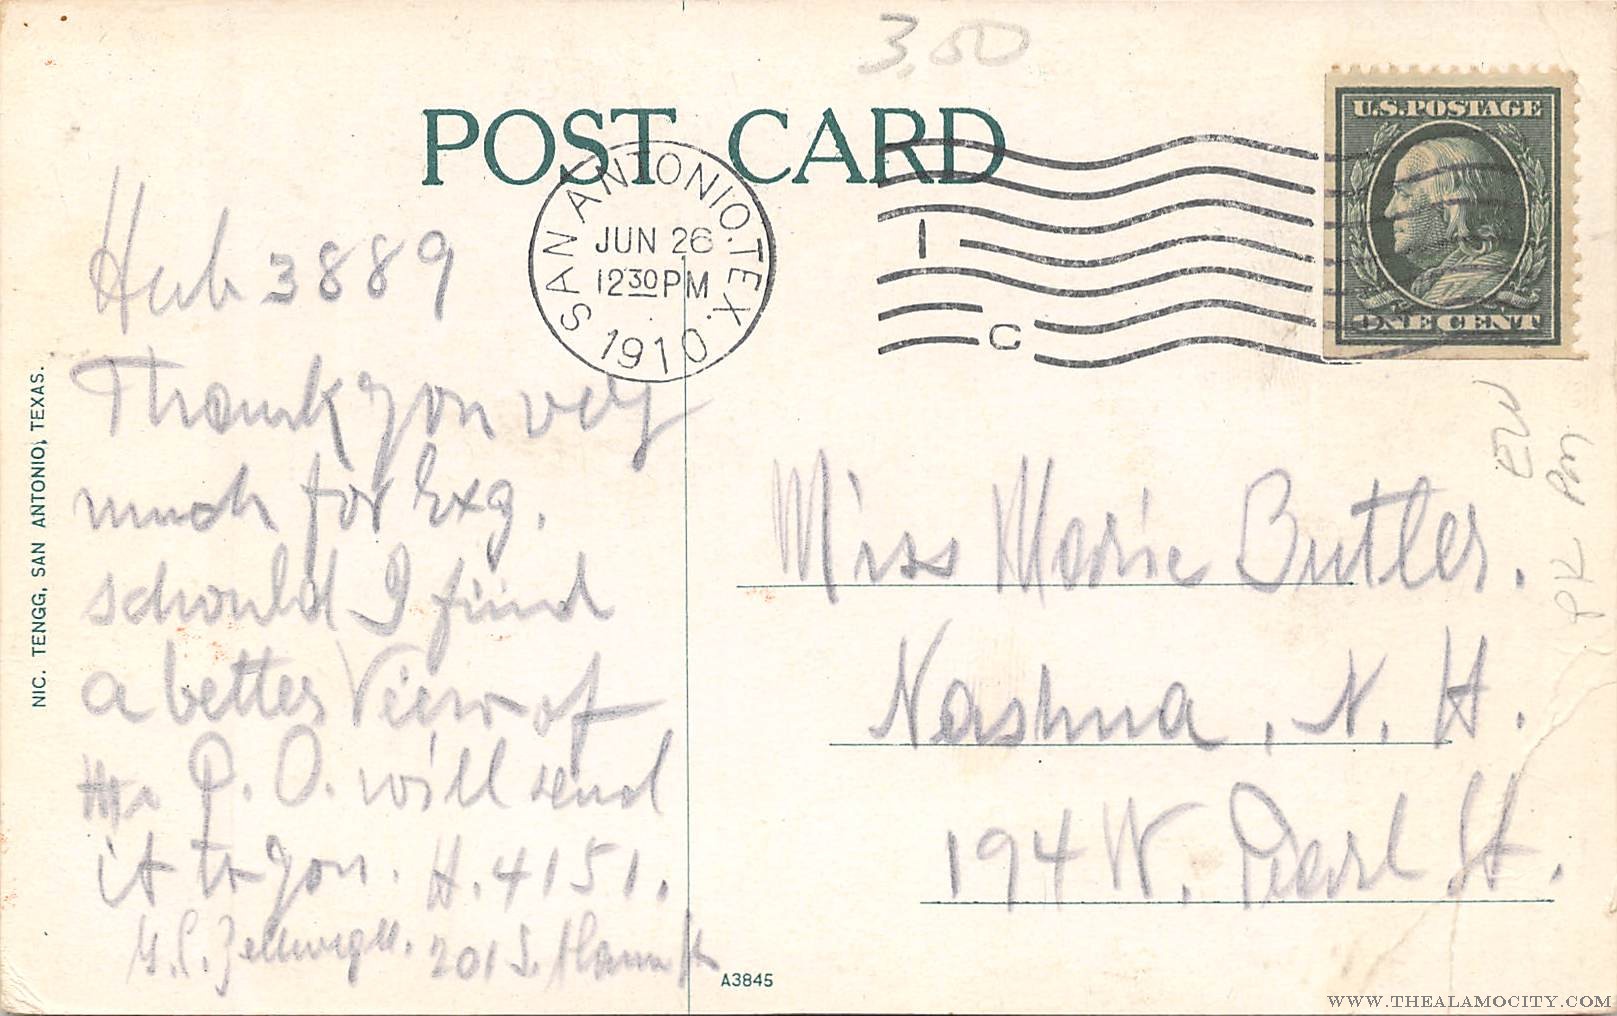 3.00
POST CARD
SAN ANTONIO, TEX.
JUN 26
12 30 PM
1910
1 C
U.S. POSTAGE
ONE CENT
Hub 3889
Thank you very
much for Exg.
schould I find
a better View of
the P. O. will send
it to you. H. 4151.
201 S.
Miss Marie Butler.
Nashua, N. H.
194 W. Pearl St.
EW
PK PM
NIC. TENGG, SAN ANTONIO, TEXAS.
A3845
WWW.THEALAMOCITY.COM